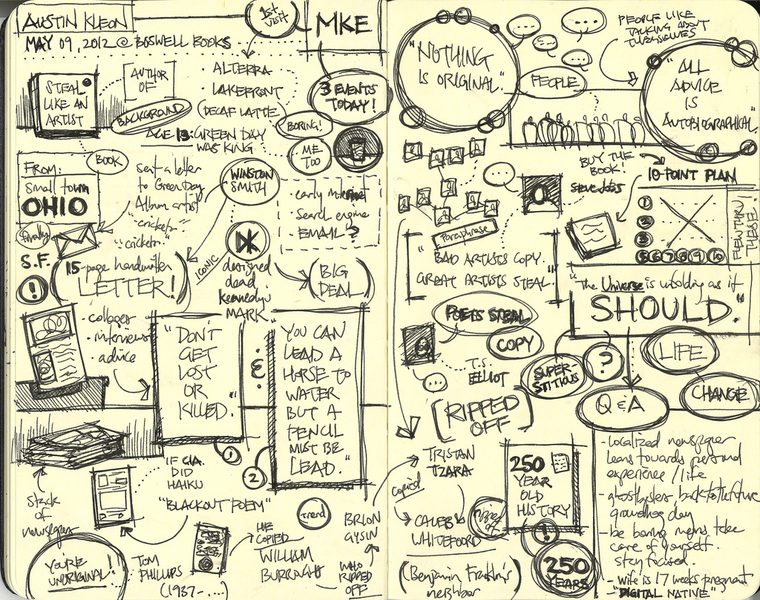 AUSTIN KLEON
MAY 09, 2012 @ BOSWELL BOOKS
1st VISIT
MKE
STEAL
LIKE AN
ARTIST
AUTHOR
OF
BACKGROUND
ALTERRA
LAKEFRONT
DECAF LATTE
BORING!
3 EVENTS
TODAY!
ME
TOO
AGE 13: GREEN DAY
WAS KING
BOOK
FROM:
small town
OHIO
Finally!
S.F.
!
sent a letter
to Green Day
Album artist
"cricket"
"cricket"
WINSTON
SMITH
early
search engine
- EMAIL?
15-page handwritten
LETTER!
ICONIC
DK
designed
dead
kennedys
MARK
BIG
DEAL
- collages
- interviews
- advice
"DON'T
GET
LOST
OR
KILLED."
&
"YOU CAN
LEAD A
HORSE TO
WATER
BUT A
PENCIL
MUST BE
LEAD."
1
2
stack
of
newspaper
IF CIA
DID
HAIKU
"BLACKOUT POEM"
YOU'RE
UNORIGINAL!
TOM
PHILLIPS
(1937-...)
HE
COPIED
WILLIAM
BURROUGHS
trend
BRION
GYSIN
WHO
RIPPED
OFF
"NOTHING
IS ORIGINAL."
PEOPLE
PEOPLE LIKE
TALKING ABOUT
THEMSELVES
"ALL
ADVICE
IS
AUTOBIOGRAPHICAL"
BUY THE
BOOK!
10-POINT PLAN
steve jobs
1
2
3
4
5 6 7 8 9 10
FLEW THRU
THESE!
Paraphrase
"BAD ARTISTS COPY.
GREAT ARTISTS STEAL."
"The Universe is unfolding as it
SHOULD."
POETS STEAL
COPY
T.S.
ELLIOT
SUPER-
STITIOUS
?
LIFE
CHANGE
Q & A
RIPPED
OFF
TRISTAN
TZARA
copied
CALEB
WHITEFOORD
(Benjamin Franklin's
neighbor)
250
YEAR
OLD
HISTORY
!
250
YEARS
- localized newspaper
leans towards personal
experience / life
- ghostbusters, back to the future
groundhog day
- be boring means take
care of yourself.
stay focused.
- wife is 17 weeks pregnant
"DIGITAL NATIVE"